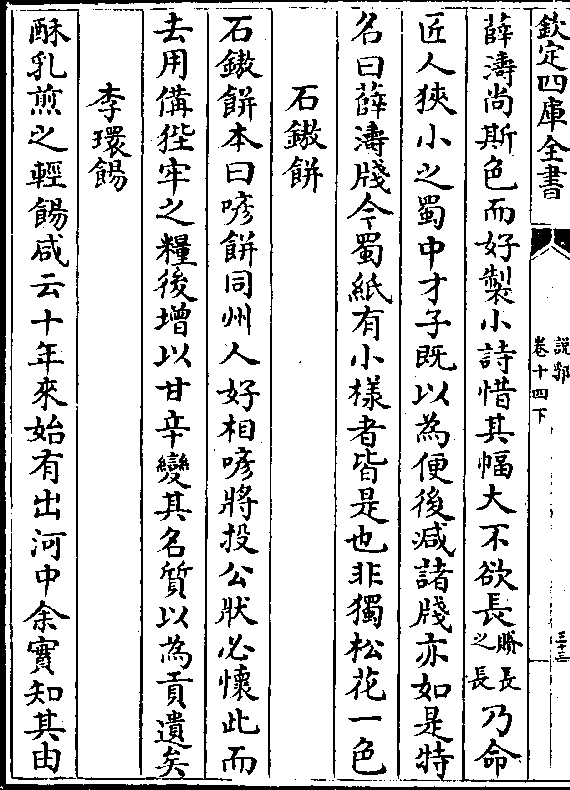 欽定四庫全書
說郛
卷十四下
三十三
薛濤尚斯色而好製小詩惜其幅大不欲長賸長之長乃命
匠人狹小之蜀中才子既以為便後減諸牋亦如是特
名曰薛濤牋今蜀紙有小樣者皆是也非獨松花一色
石鏉餅
石鏉餅本曰喭餅同州人好相喭將投公狀必懷此而
去用備狴牢之糧後增以甘辛變其名質以為貢遺矣
李環餳
酥乳煎之輕餳咸云十年來始有出河中余實知其由